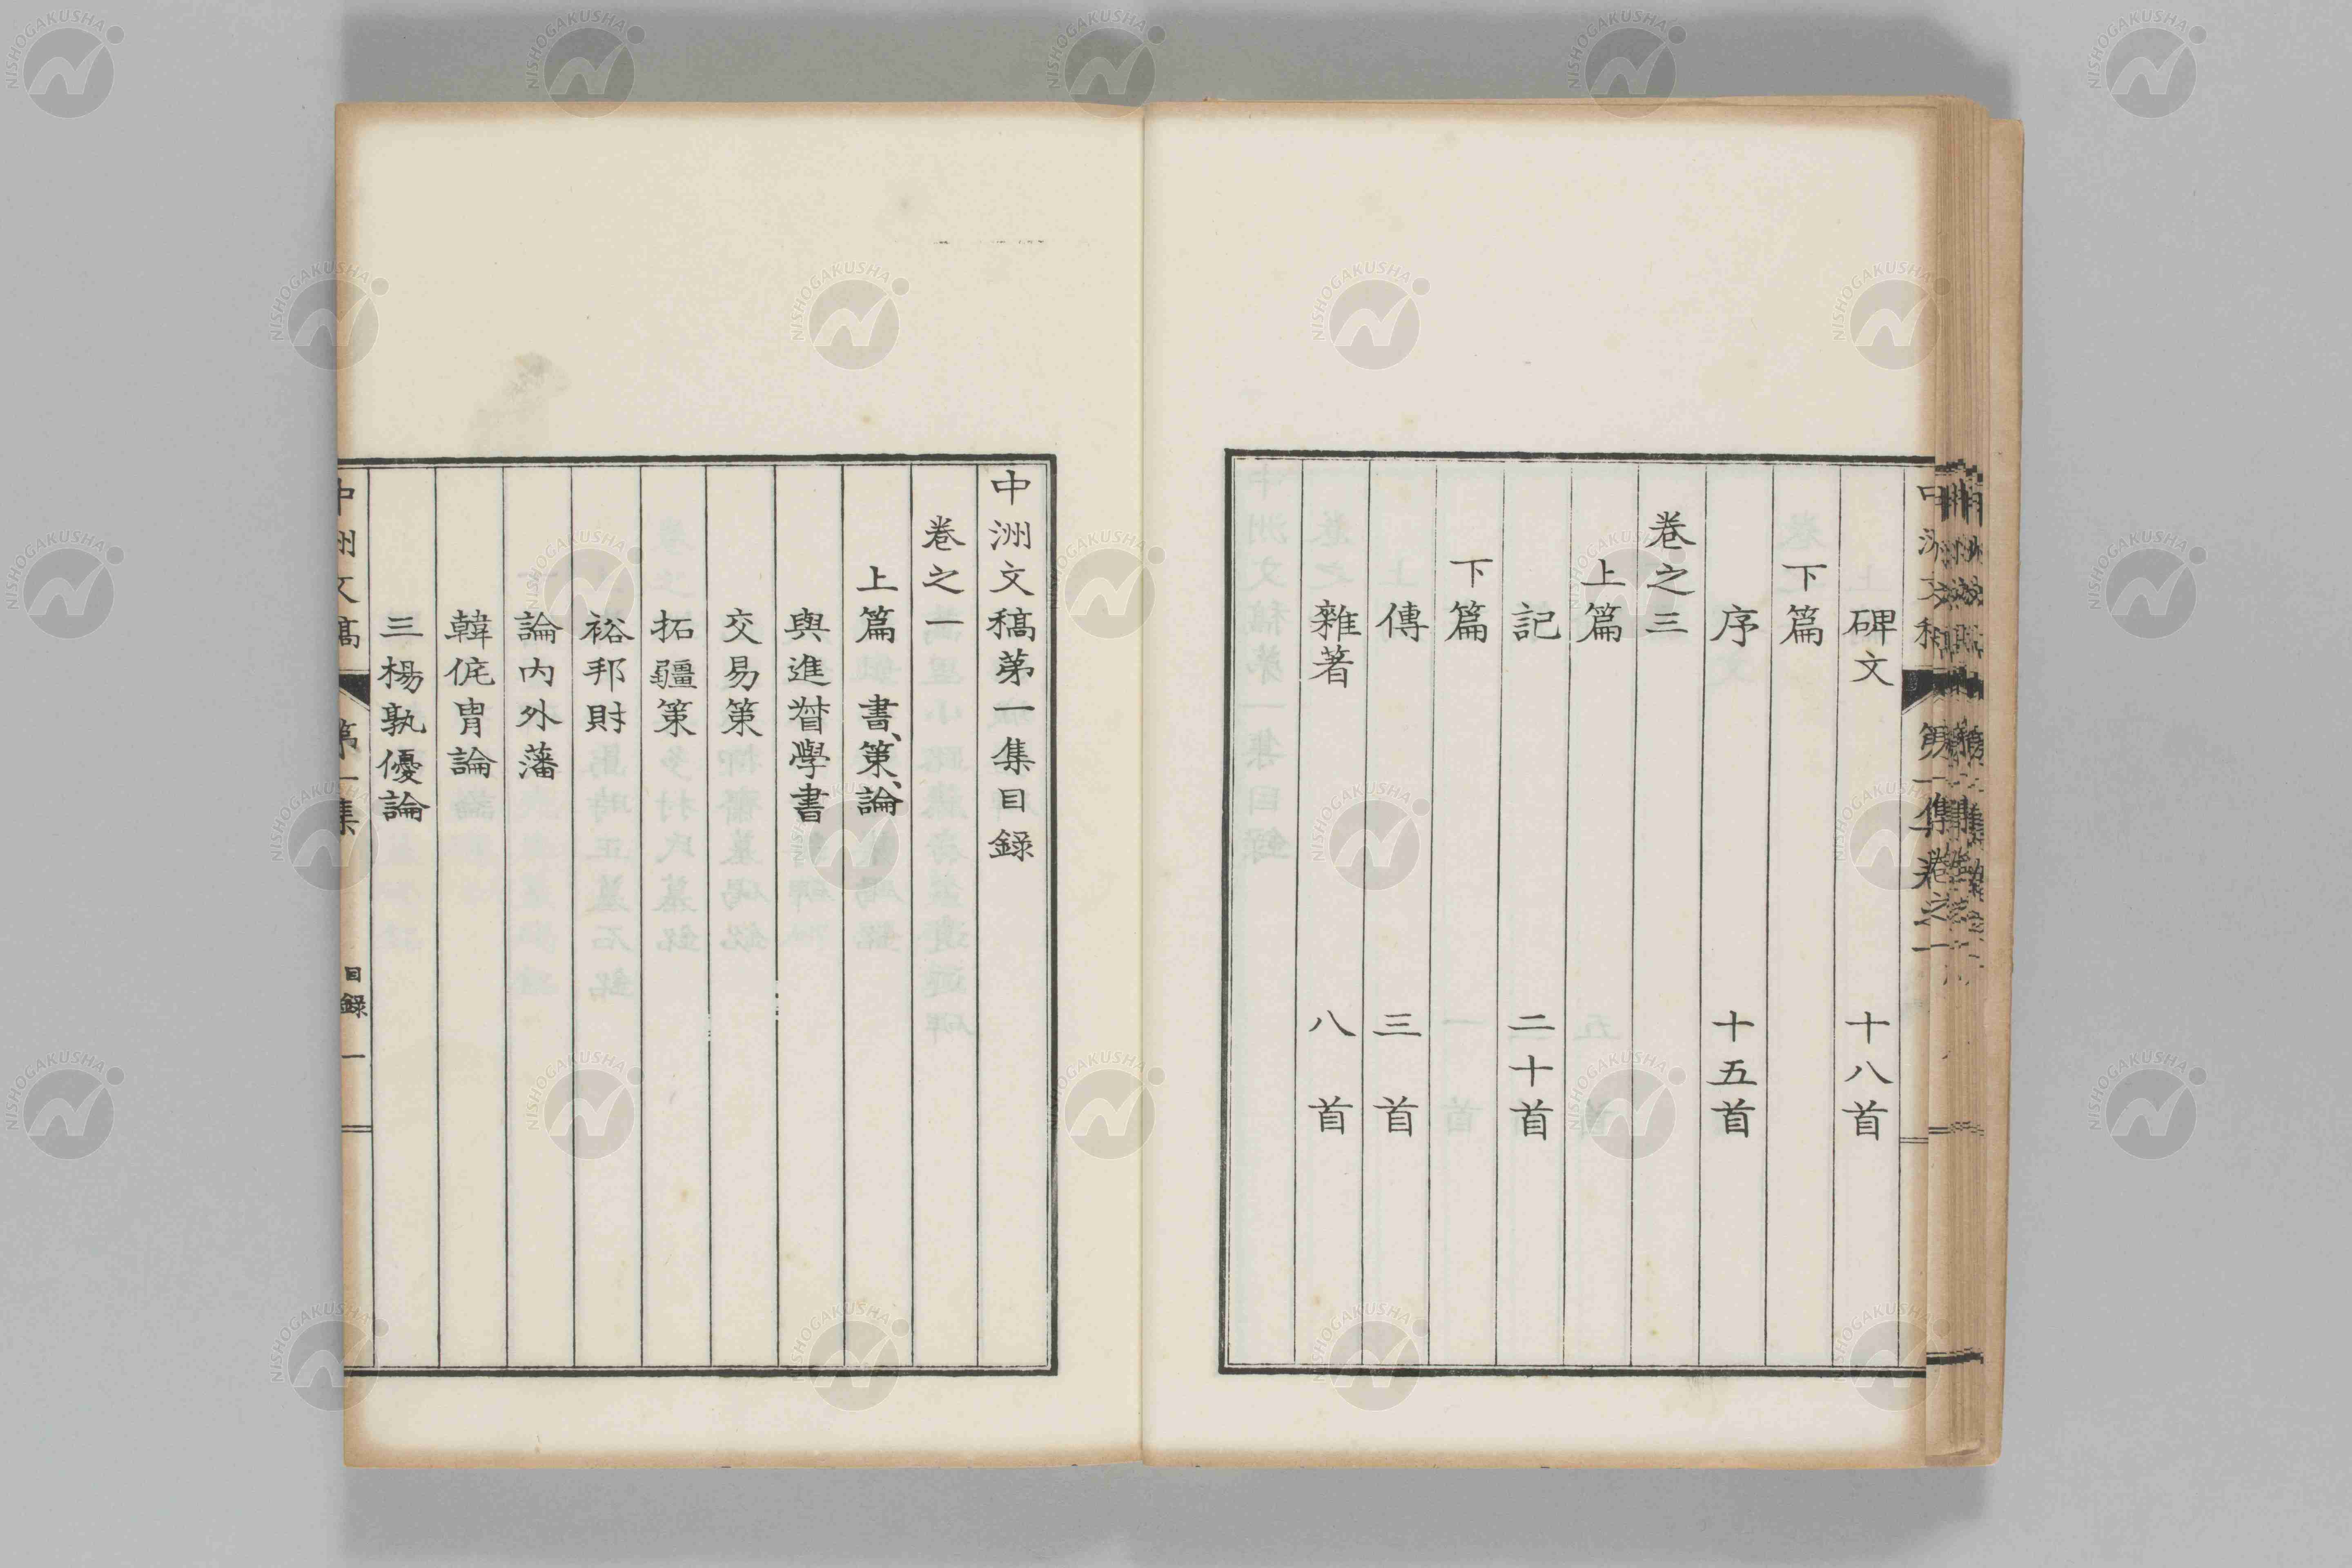 碑文 十八首
下篇
序 十五首
卷之三
上篇
記 二十首
下篇
傳 三首
雜著 八首
中洲文稿第一集目録
卷之一
上篇 書、策、論
與進督學書
交易策
拓疆策
裕邦財
論內外藩
韓侂冑論
三楊孰優論
中洲文稿 第一集 目録 一
NISHOGAKUSHA